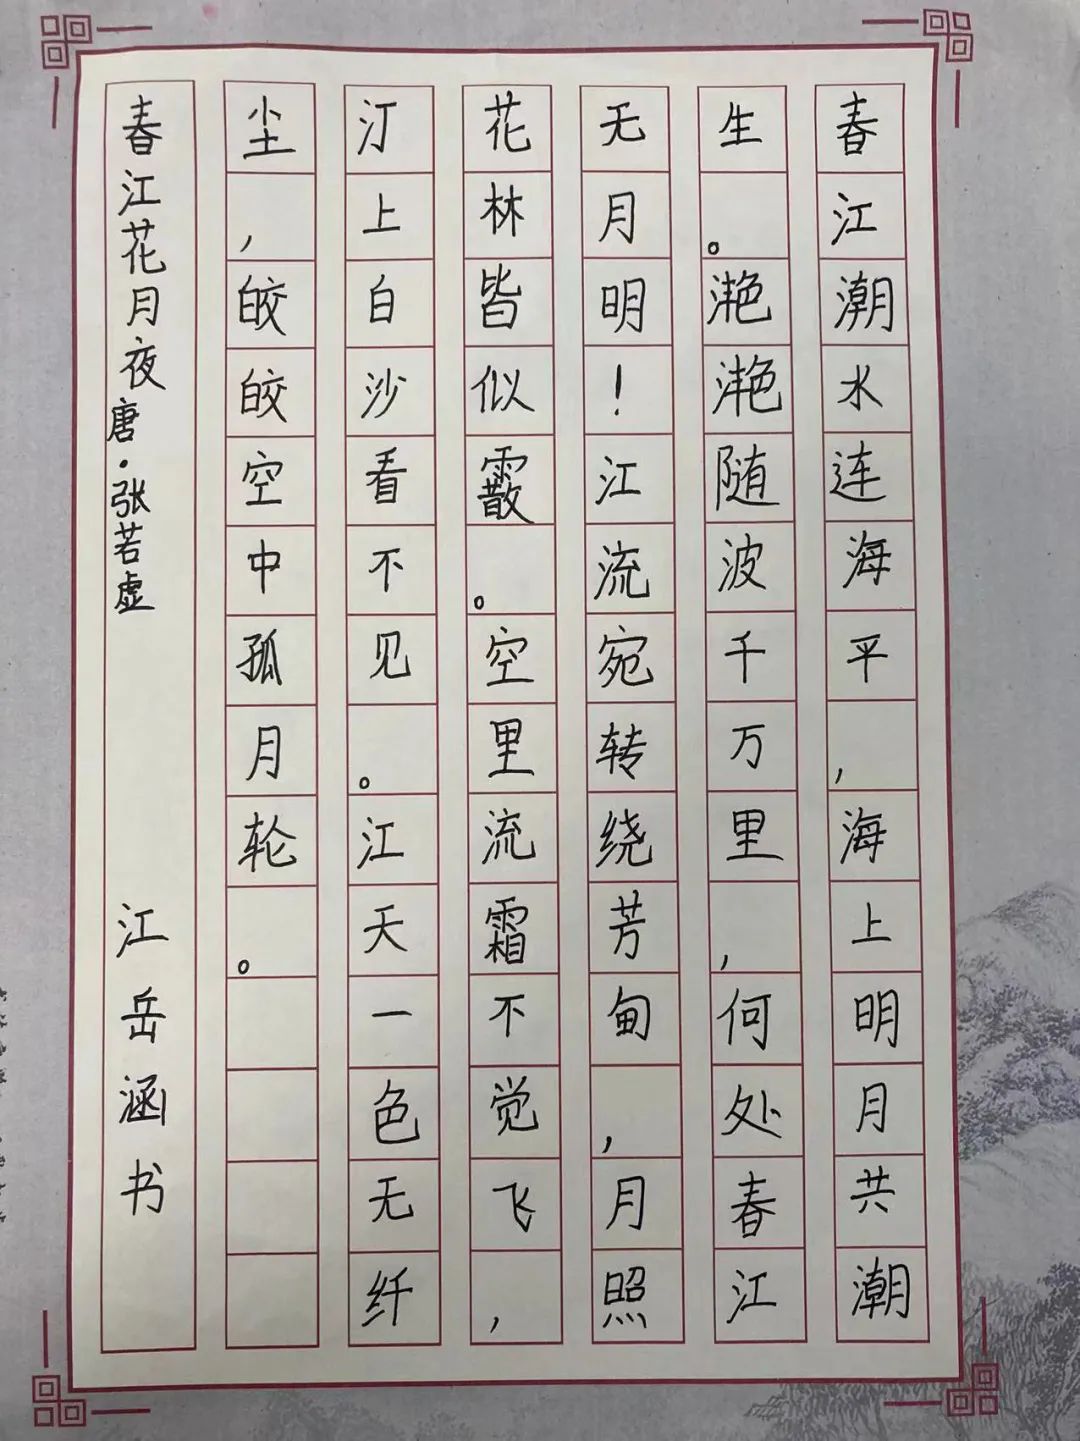 春江潮水连海平，海上明月共潮
生。滟滟随波千万里，何处春江
无月明！江流宛转绕芳甸，月照
花林皆似霰。空里流霜不觉飞，
汀上白沙看不见。江天一色无纤
尘，皎皎空中孤月轮。
春江花月夜 唐·张若虚 江岳涵书